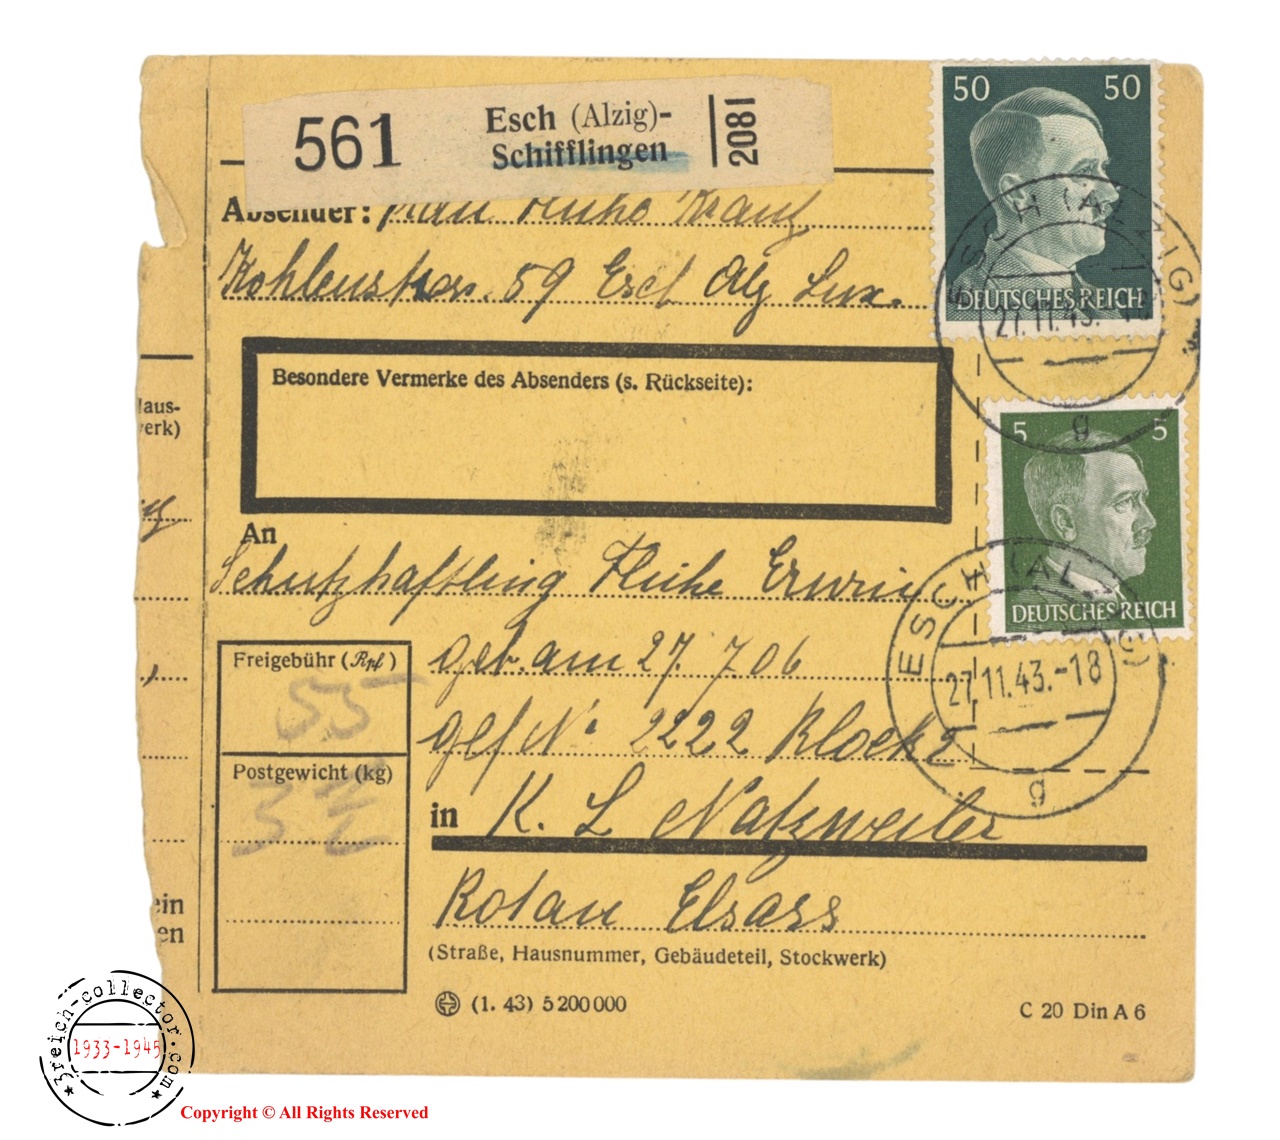 50 50
DEUTSCHES REICH
561
Esch (Alzig)-
Schifflingen
2081
Absender: Frau
Kohlenstras. 59 Esch Alz Lux.
ESCH (ALZIG)
27.11.43.-18
g
Besondere Vermerke des Absenders (s. Rückseite):
Haus-
werk)
5 5
DEUTSCHES REICH
An
Schutzhaftling Erwin
geb. am 27. 7 06
gef No 2222 Block 2
in K. L Natzweiler
Rotau Elsass
(Straße, Hausnummer, Gebäudeteil, Stockwerk)
ESCH (ALZIG)
27.11.43.-18
g
Freigebühr (Rpf)
55
Postgewicht (kg)
3
ein
en
(1. 43) 5 200 000
C 20 Din A 6
3reich-collector.com
1933-1945
Copyright © All Rights Reserved